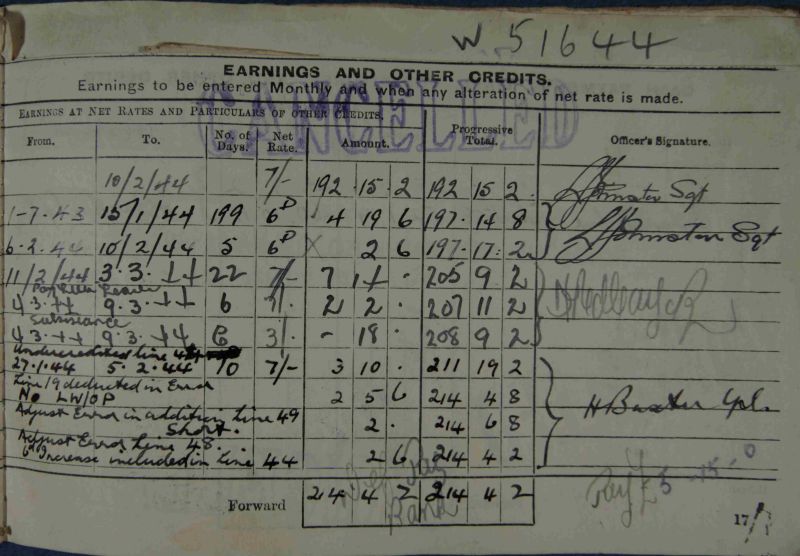 W 51644
EARNINGS AND OTHER CREDITS.
Earnings to be entered Monthly and when any alteration of net rate is made.
CANCELLED
EARNINGS AT NET RATES AND PARTICULARS OF OTHER CREDITS.
From. To. No. of Days. Net Rate. Amount. Progressive Total. Officer's Signature.
10/2/44 7/- 192 15 2 192 15 2 Johnston Sgt
1-7-43 15/1/44 199 6d 4 19 6 197 14 8
6-2-44 10/2/44 5 6d X 2 6 197 17 2 Johnston Sgt
11/2/44 3.3.44 22 7/- 7 14 . 205 9 2
Pay
4.3.44 9.3.44 6 7/. 2 2 . 207 11 2
Subsistance
4.3.44 9.3.44 6 3/. - 18 . 208 9 2
Undercredited line
27.1.44 5.2.44 10 7/- 3 10 . 211 19 2
Line 19 deducted in Error
No LWOP 2 5 6 214 4 8 H Baxter Cpl.
Adjust Error in addition Line 49
Short. 2 . 214 6 8
Adjust Error Line 48.
6d Increase included in line 44 2 6 214 4 2
Forward 214 4 2 214 4 2
Pay £5-15-0
17